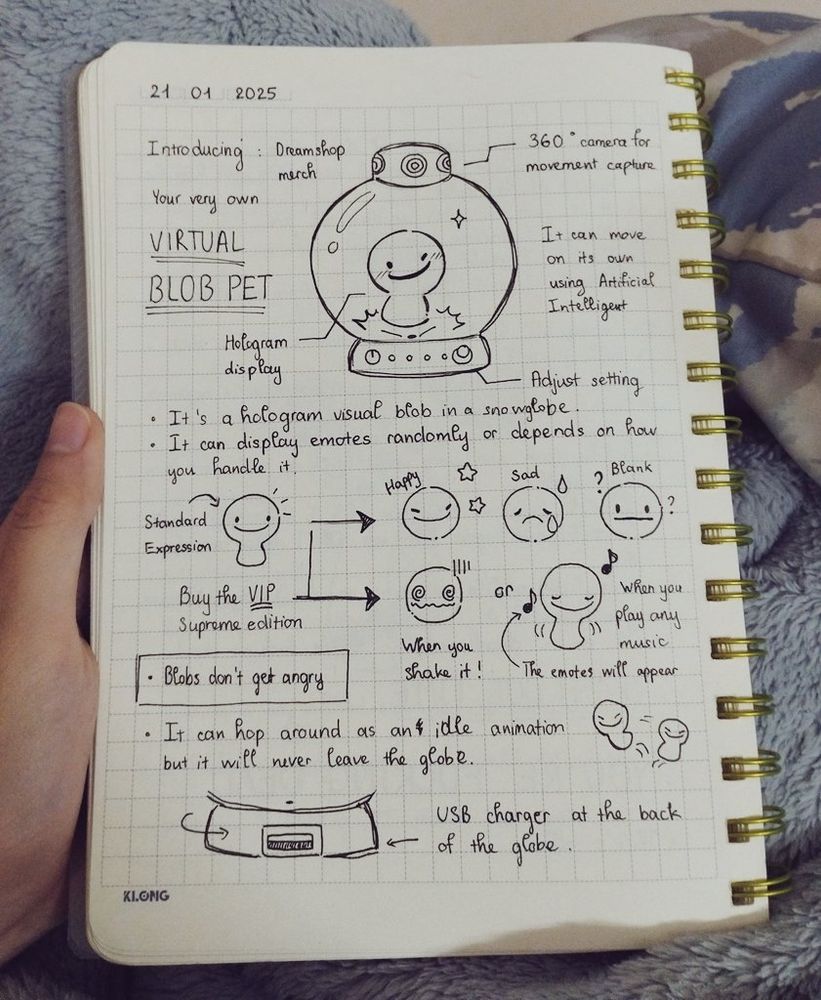 21 01 2025
Introducing : Dreamshop
merch
Your very own
VIRTUAL
BLOB PET
360° camera for
movement capture
It can move
on its own
using Artificial
Intelligent
Hologram
display
Adjust setting
• It's a hologram visual blob in a snowglobe.
• It can display emotes randomly or depends on how
you handle it.
Standard
Expression
Happy
Sad
? Blank
?
Buy the VIP
Supreme edition
When you
shake it!
or
When you
play any
music
The emotes will appear
• Blobs don't get angry
• It can hop around as an idle animation
but it will never leave the globe.
USB charger at the back
of the globe.
KLONG